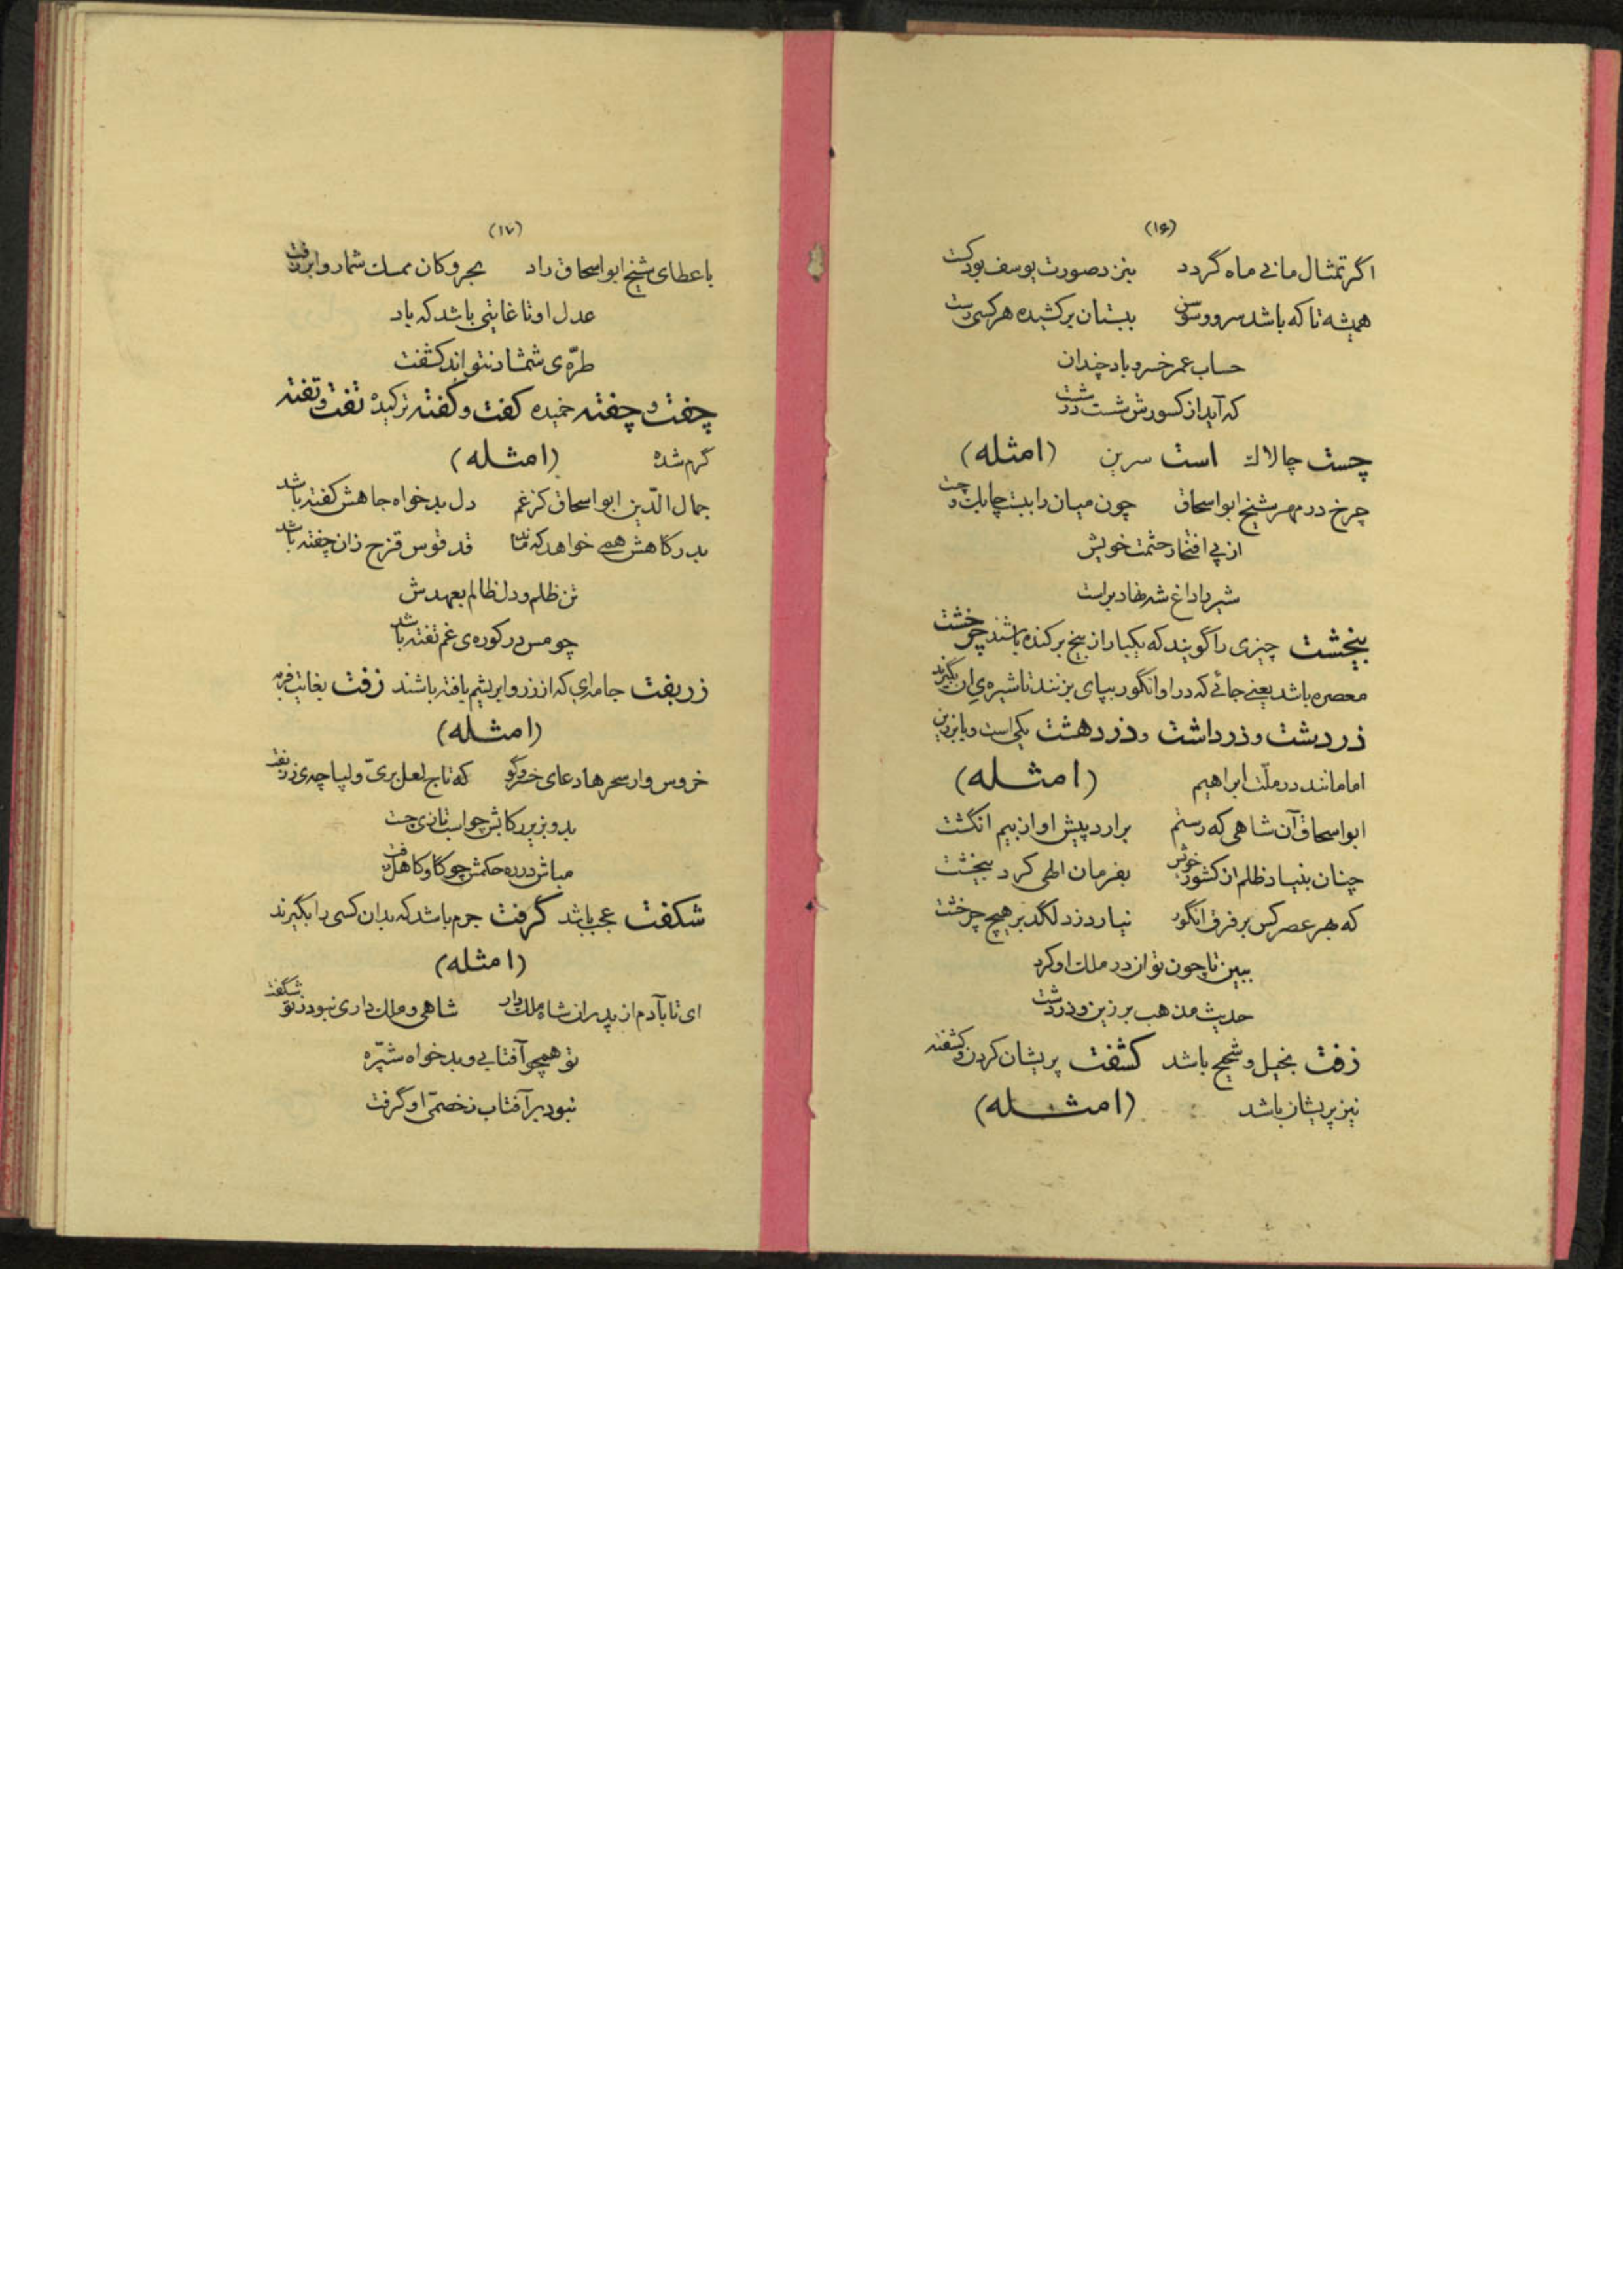 (۱۶)
اگر تمثال مانی ماه گردد بنزد صورت یوسف بود کت
همیشه تا که باشد سرو و سوسن ببستان برکشیده هر کسی رست
حساب عمر خسرو باد چندان
که آید از کسورش شست در شست
چست چالاک است سرین (امثله)
چرخ در مهر شیخ ابو اسحاق چون میان را ببست چابک و چست
از پی افتخار حشمت خویش
شیر را داغ شه نهاد براست
بیخشت چیزی را گویند که یکبار از بیخ برکنده باشند چرخشت
معصره باشد یعنی جائی که در او انگور بپای بزنند تا شیره‌ی ان بگیرند
زردشت و زرداشت و زردهشت یکی است و با برزین
امامانند در ملّت ابراهیم (امثله)
ابو اسحاق آن شاهی که رستم برارد پیش او از بیم انگشت
چنان بنیاد ظلم از کشور خویش بفرمان الهی کرد بیخشت
که بهر عصر کس بر فرق انگور نیارد زد لگد بر هیچ چرخشت
ببین تا چون توان در ملک او کرد
حدیث مذهب برزین و زردشت
زفت بخیل و شحیح باشد کشفت پریشان کردن و کشفته
نیز پریشان باشد (امثله)
(۱۷)
با عطای شیخ ابو اسحاق راد بحر و کان ممسک شمار و ابر زفت
عدل او تا غایتی باشد که باد
طرّه‌ی شمشاد نتواند کشفت
چفت و چفته خمیده کفت و کفته ترکیده تفت و تفته
گرم شده (امثله)
جمال الدّین ابو اسحاق کز غم دل بدخواه جاهش کفته باشد
بدرگاهش همی خواهد که ماند قد قوس قزح زان چفته باشد
تن ظلم و دل ظالم بعهدش
چو مس در کوره‌ی غم تفته باشد
زربفت جامه‌ای که از زر و ابریشم بافته باشند زفت بغایت فربه
(امثله)
خروس وار سحرها دعای خسرو گو که تاج لعل بری و لپاچه‌ی زربفت
بدو بزیر رکابش چو اسب تازی چست
مباش در ره حکمش چو گاو کاهل زفت
شکفت عجب باشد گرفت جرم باشد که بدان کسی را بگیرند
(امثله)
ای تا بآدم از پدران شاه ملک دار شاهی و ملک داری نبود ز تو شگفت
تو همچو آفتابی و بدخواه شپّره
نبود بر آفتاب ز خصمیّ او گرفت